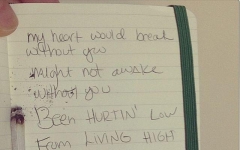 my heart would break
without you
might not awake
without you
BEEN HURTIN' LOW
FROM LIVING HIGH